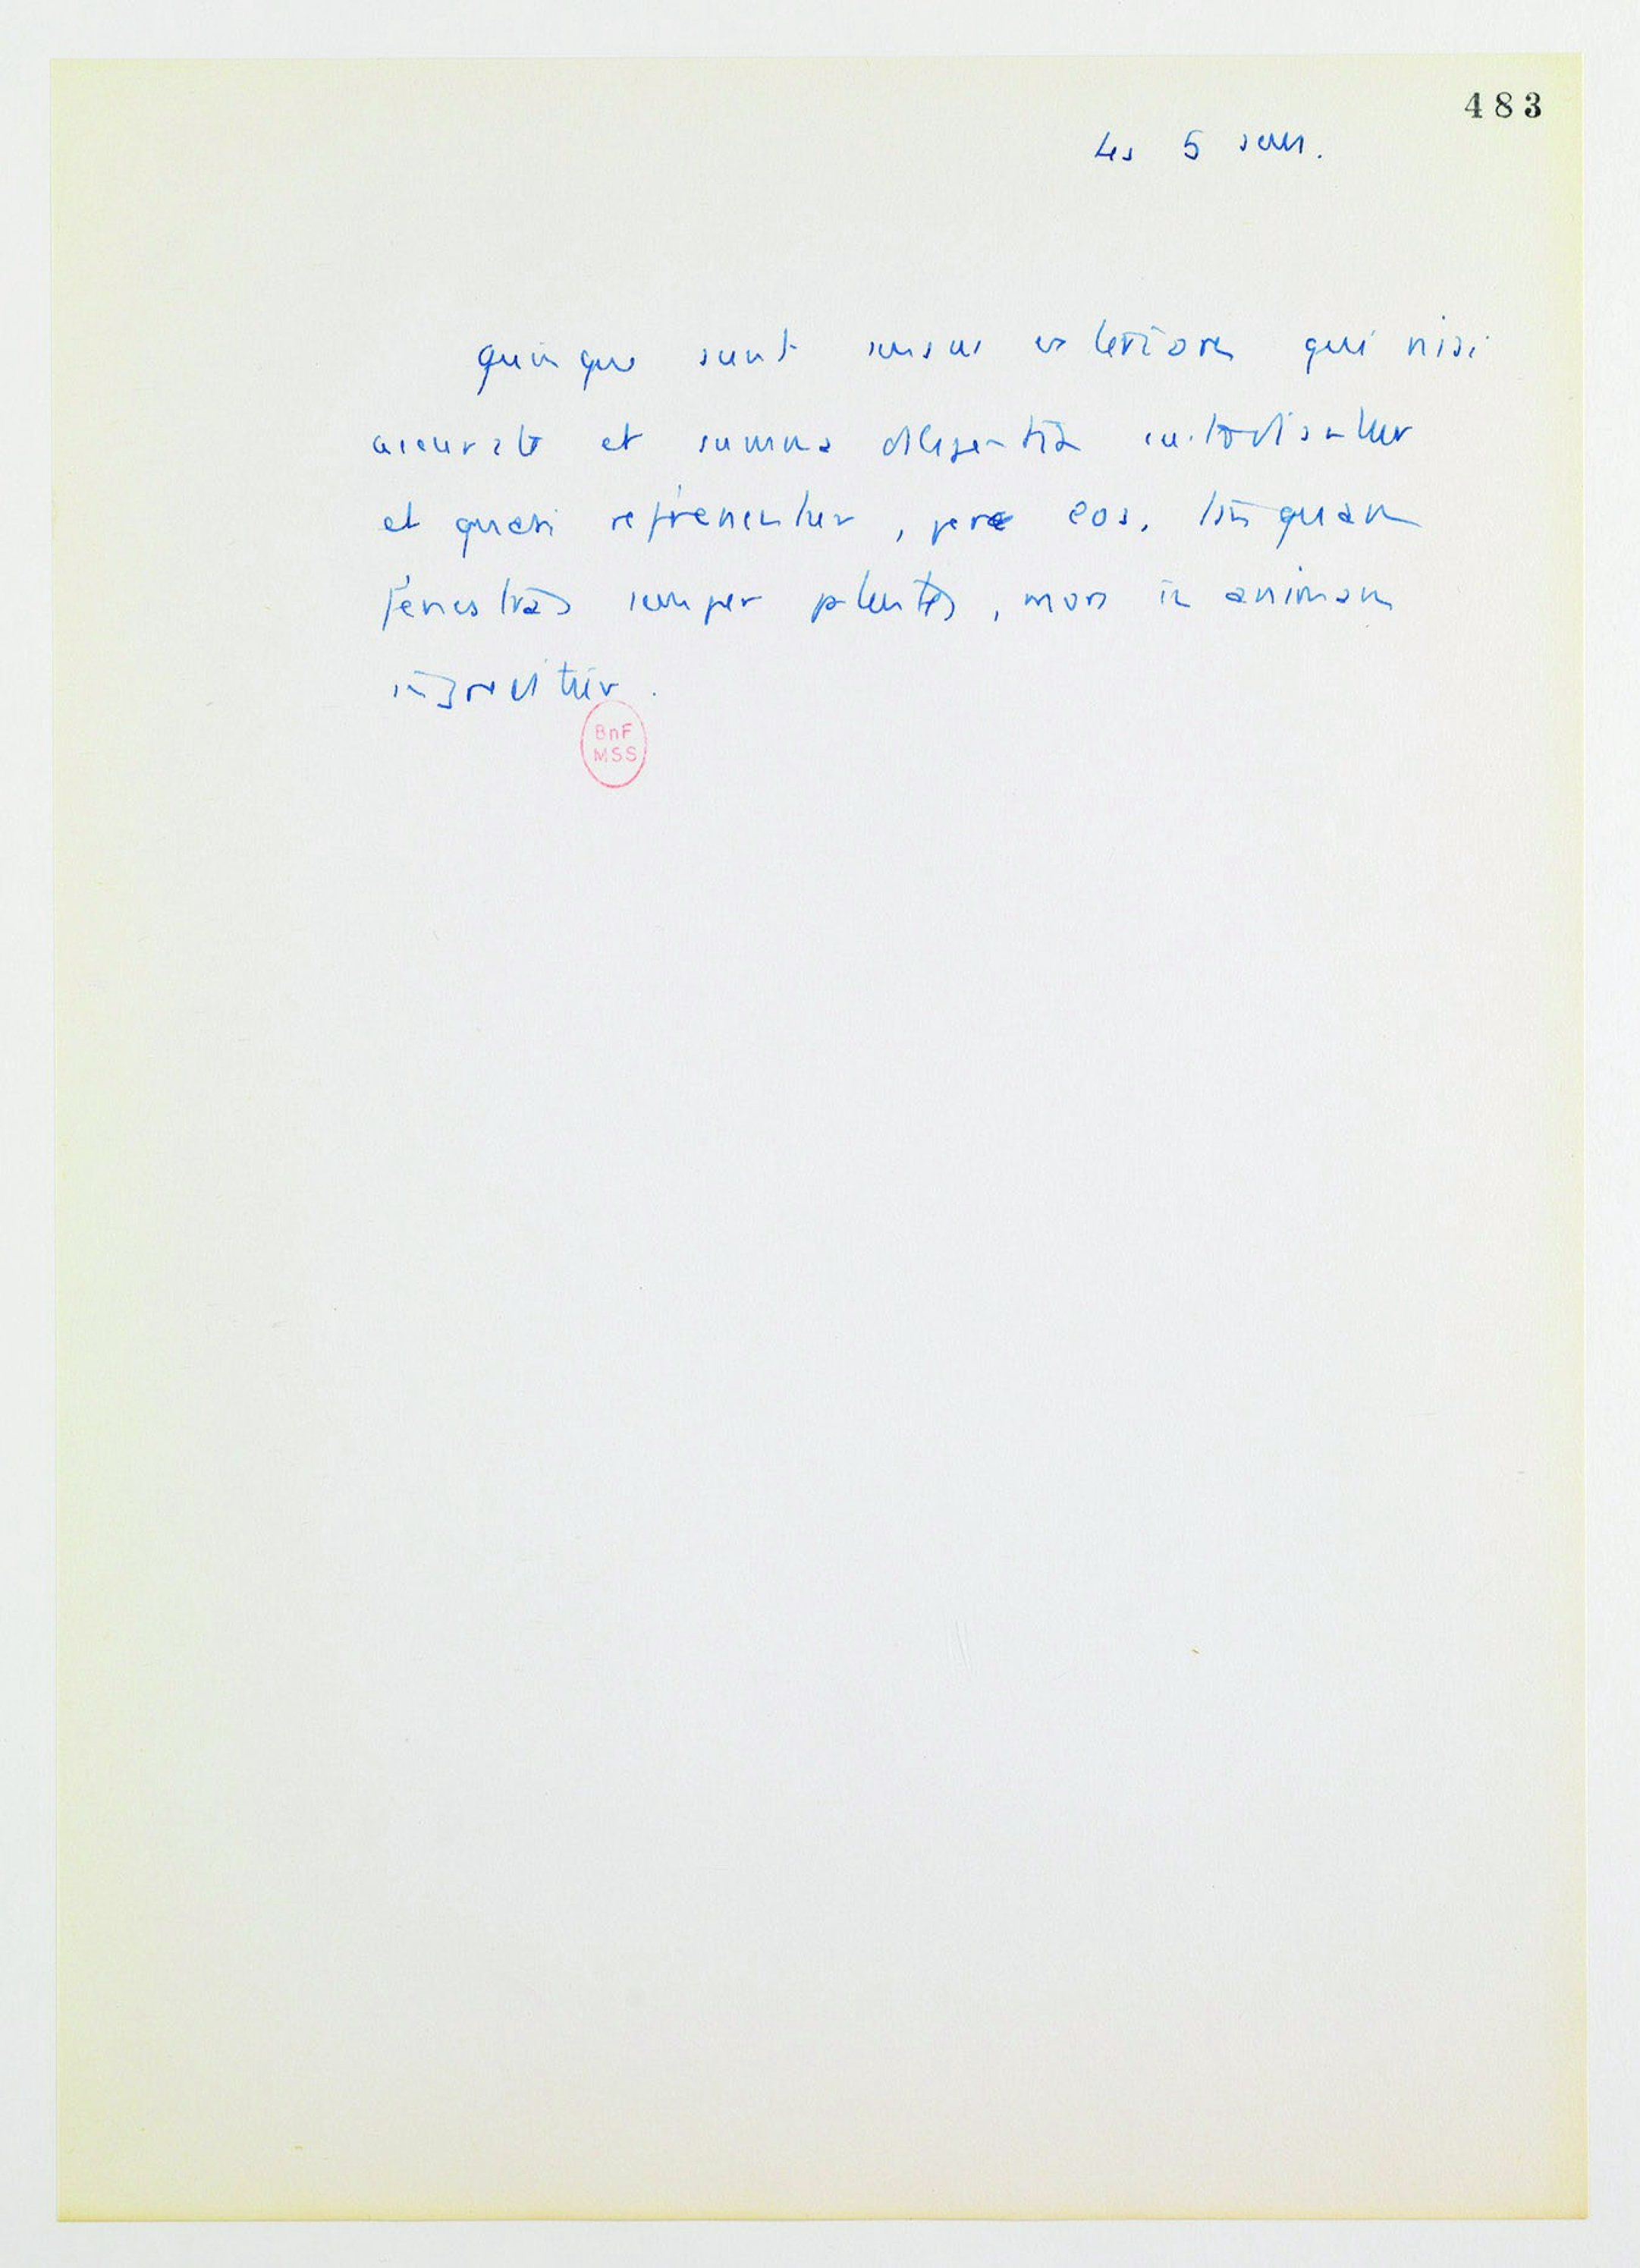 483
Les 5 sens.
quinque sunt sensus exteriores qui nisi
accurate et summa diligentia custodiantur
et quasi refrenentur, per eos, tanquam
fenestras semper patentes, mors in animam
ingreditur.
BnF
MSS